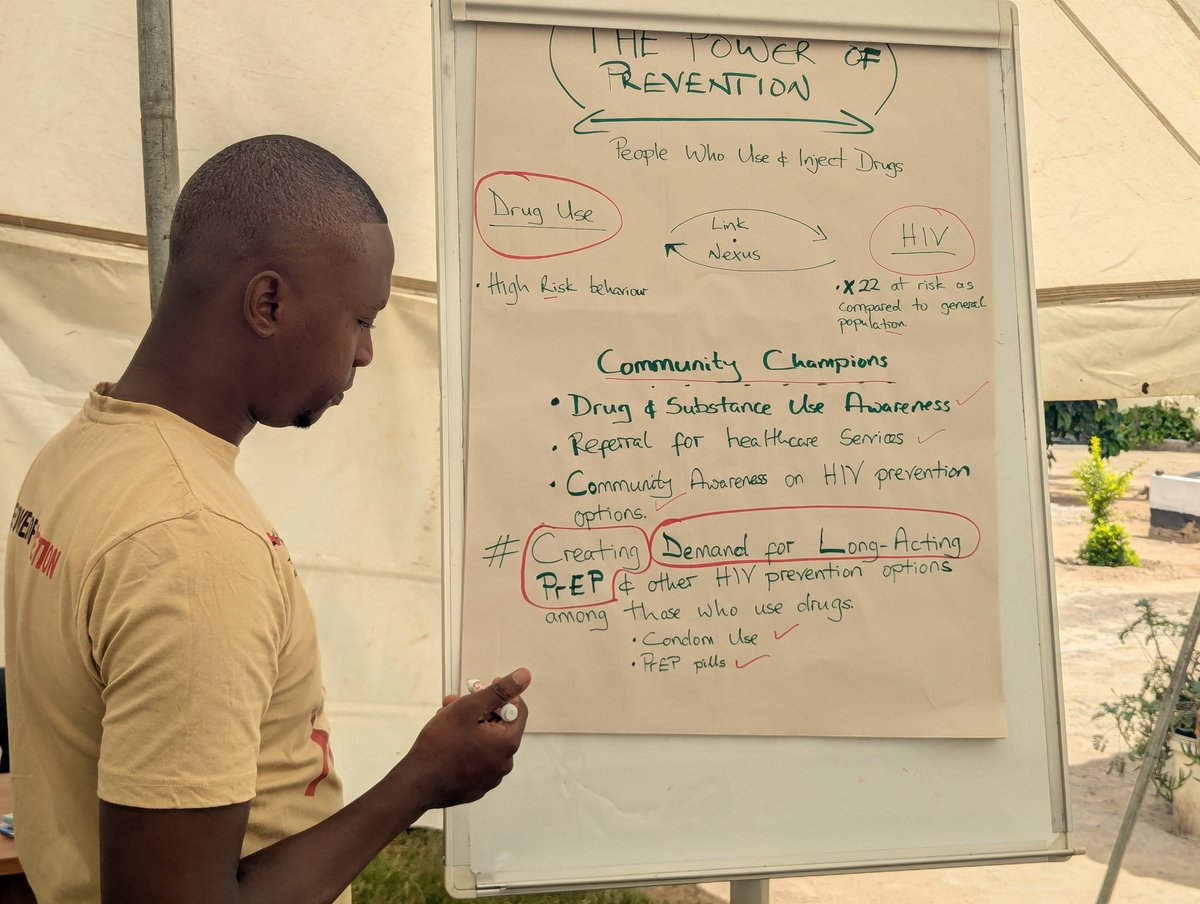 THE POWER OF
PREVENTION
People Who Use & Inject Drugs
Drug Use
Link
Nexus
HIV
• High Risk behaviour
• X22 at risk as
compared to general
population.
Community Champions
• Drug & Substance Use Awareness
• Referral for healthcare Services
• Community Awareness on HIV prevention
options.
# Creating Demand for Long-Acting
PrEP & other HIV prevention options
among those who use drugs.
• Condom Use
• PrEP pills